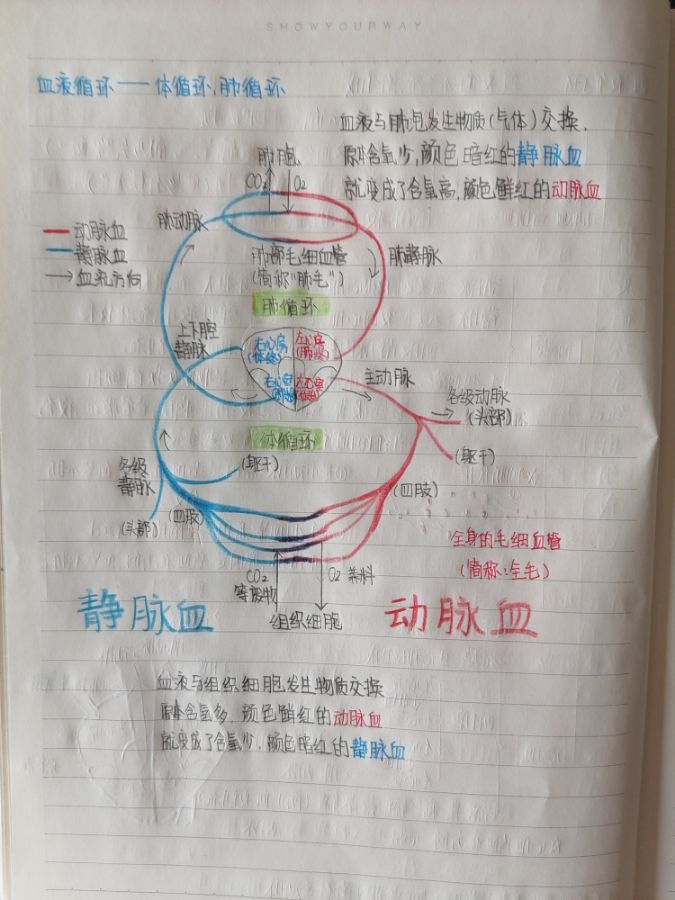 SHOWYOURWAY
血液循环——体循环,肺循环
血液与肺泡发生物质(气体)交换,
原本含氧少,颜色暗红的静脉血
就变成了含氧高,颜色鲜红的动脉血
肺胞
CO₂ O₂
肺动脉
动脉血
静脉血
血流方向
肺部毛细血管
(简称"肺毛")
肺静脉
肺循环
上下腔
静脉
右心房
左心房
右心室
左心室
主动脉
各级动脉
(头部)
(躯干)
体循环
(躯干)
各级
静脉
(四肢)
(四肢)
(头部)
全身的毛细血管
(简称:全毛)
CO₂
等废物
O₂ 养料
组织细胞
静脉血
动脉血
血液与组织细胞发生物质交换
原本含氧多,颜色鲜红的动脉血
就变成了含氧少,颜色暗红的静脉血